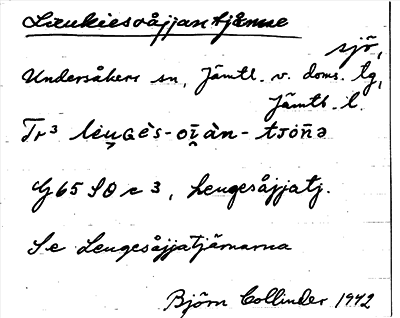 Laukiesåjjantjärnne
sjö,
Undersåkers sn, Jämtl. v. doms. tg,
Jämtl. l.
Tr³
G 65 SO c 3, Leugesåjjatj.
Se Leugesåjjatjärnarna
Björn Collinder 1942